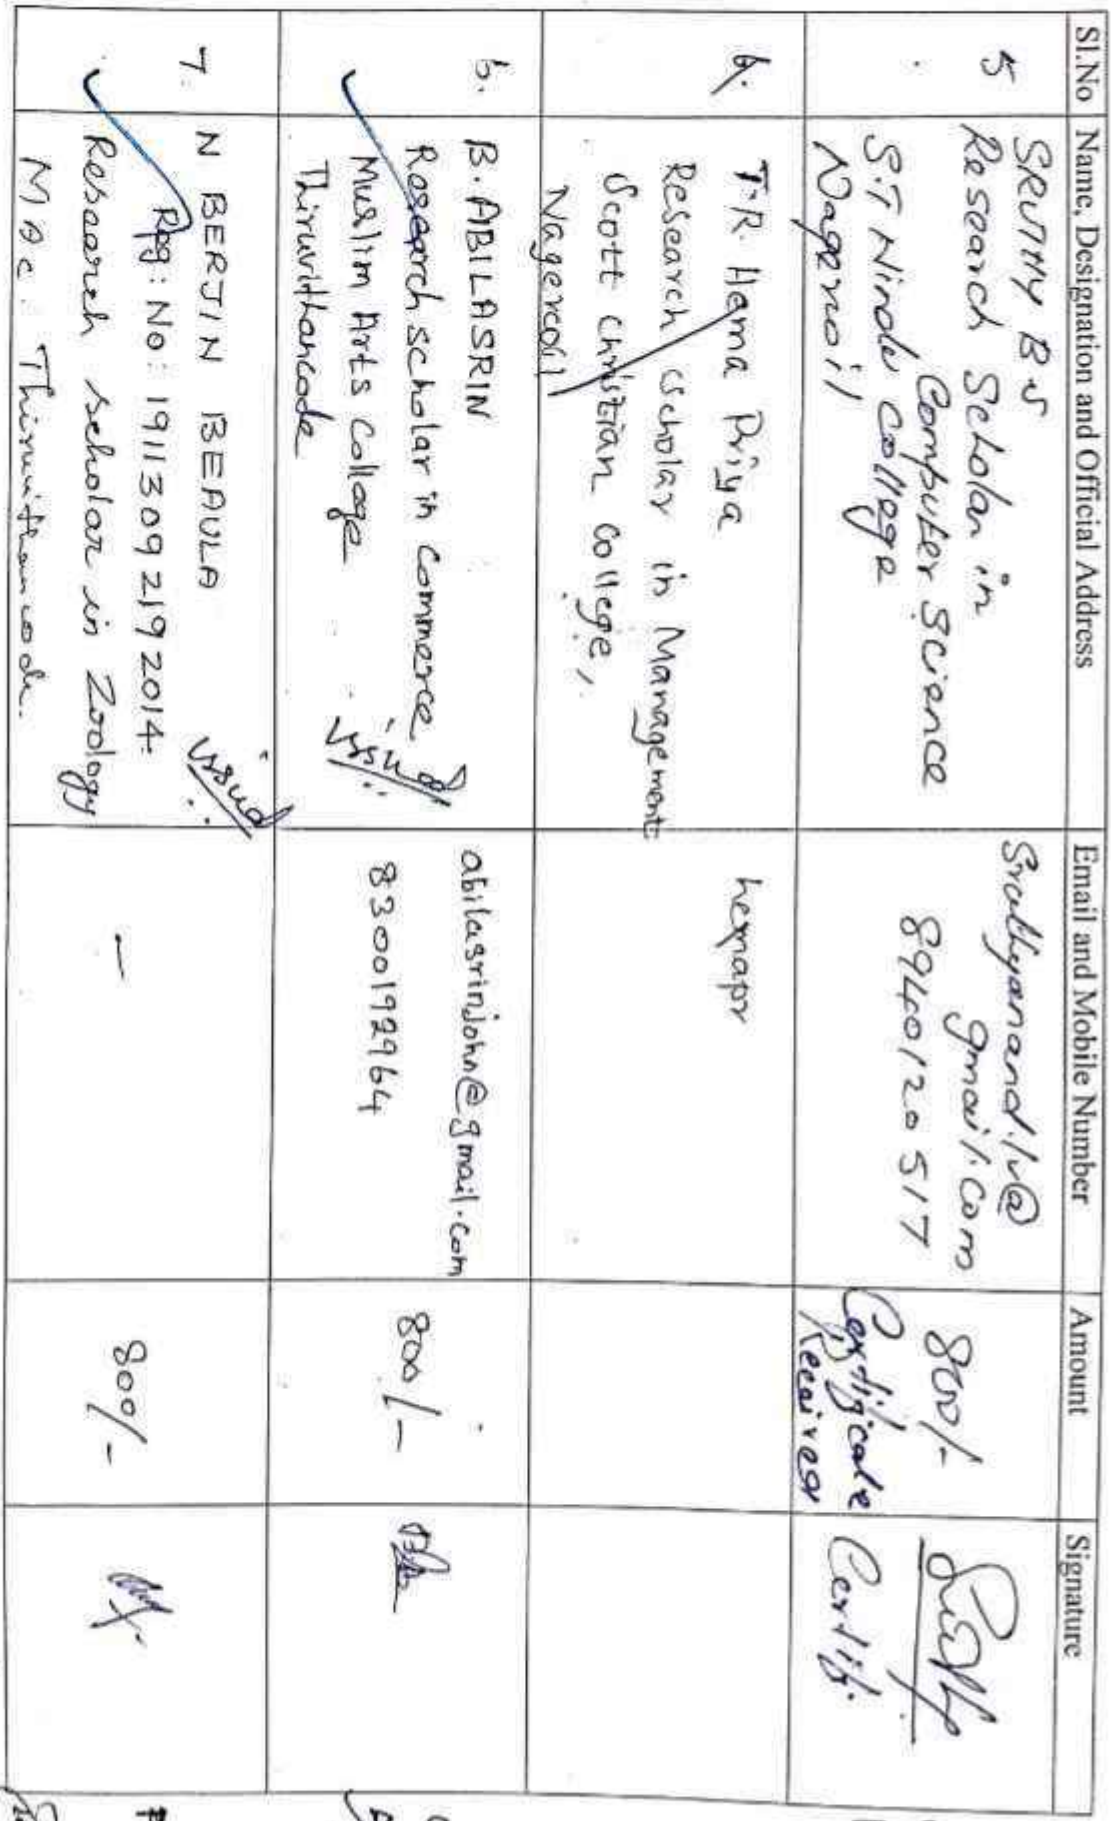 Sl.No Name, Designation and Official Address Email and Mobile Number Amount Signature
5 SRUTHY B S
Research Scholar in
Computer Science
S.T Hindu College
Nagercoil
gmail.com
8940120517
800/-
Certificate
Received
Certifi.
6. T.R. Hema Priya
Research Scholar in Management
Scott Christian College,
Nagercoil
hemapr
6. B. ABILASRIN
Research scholar in Commerce
Muslim Arts College
Thiruvithancode
issued
abilasrinjohn@gmail.com
8300192964
800/-
7. N BERJIN BEAULA
Reg: No: 19113092192014
Research scholar in Zoology
MAC Thiruvithancode.
issued
—
800/-